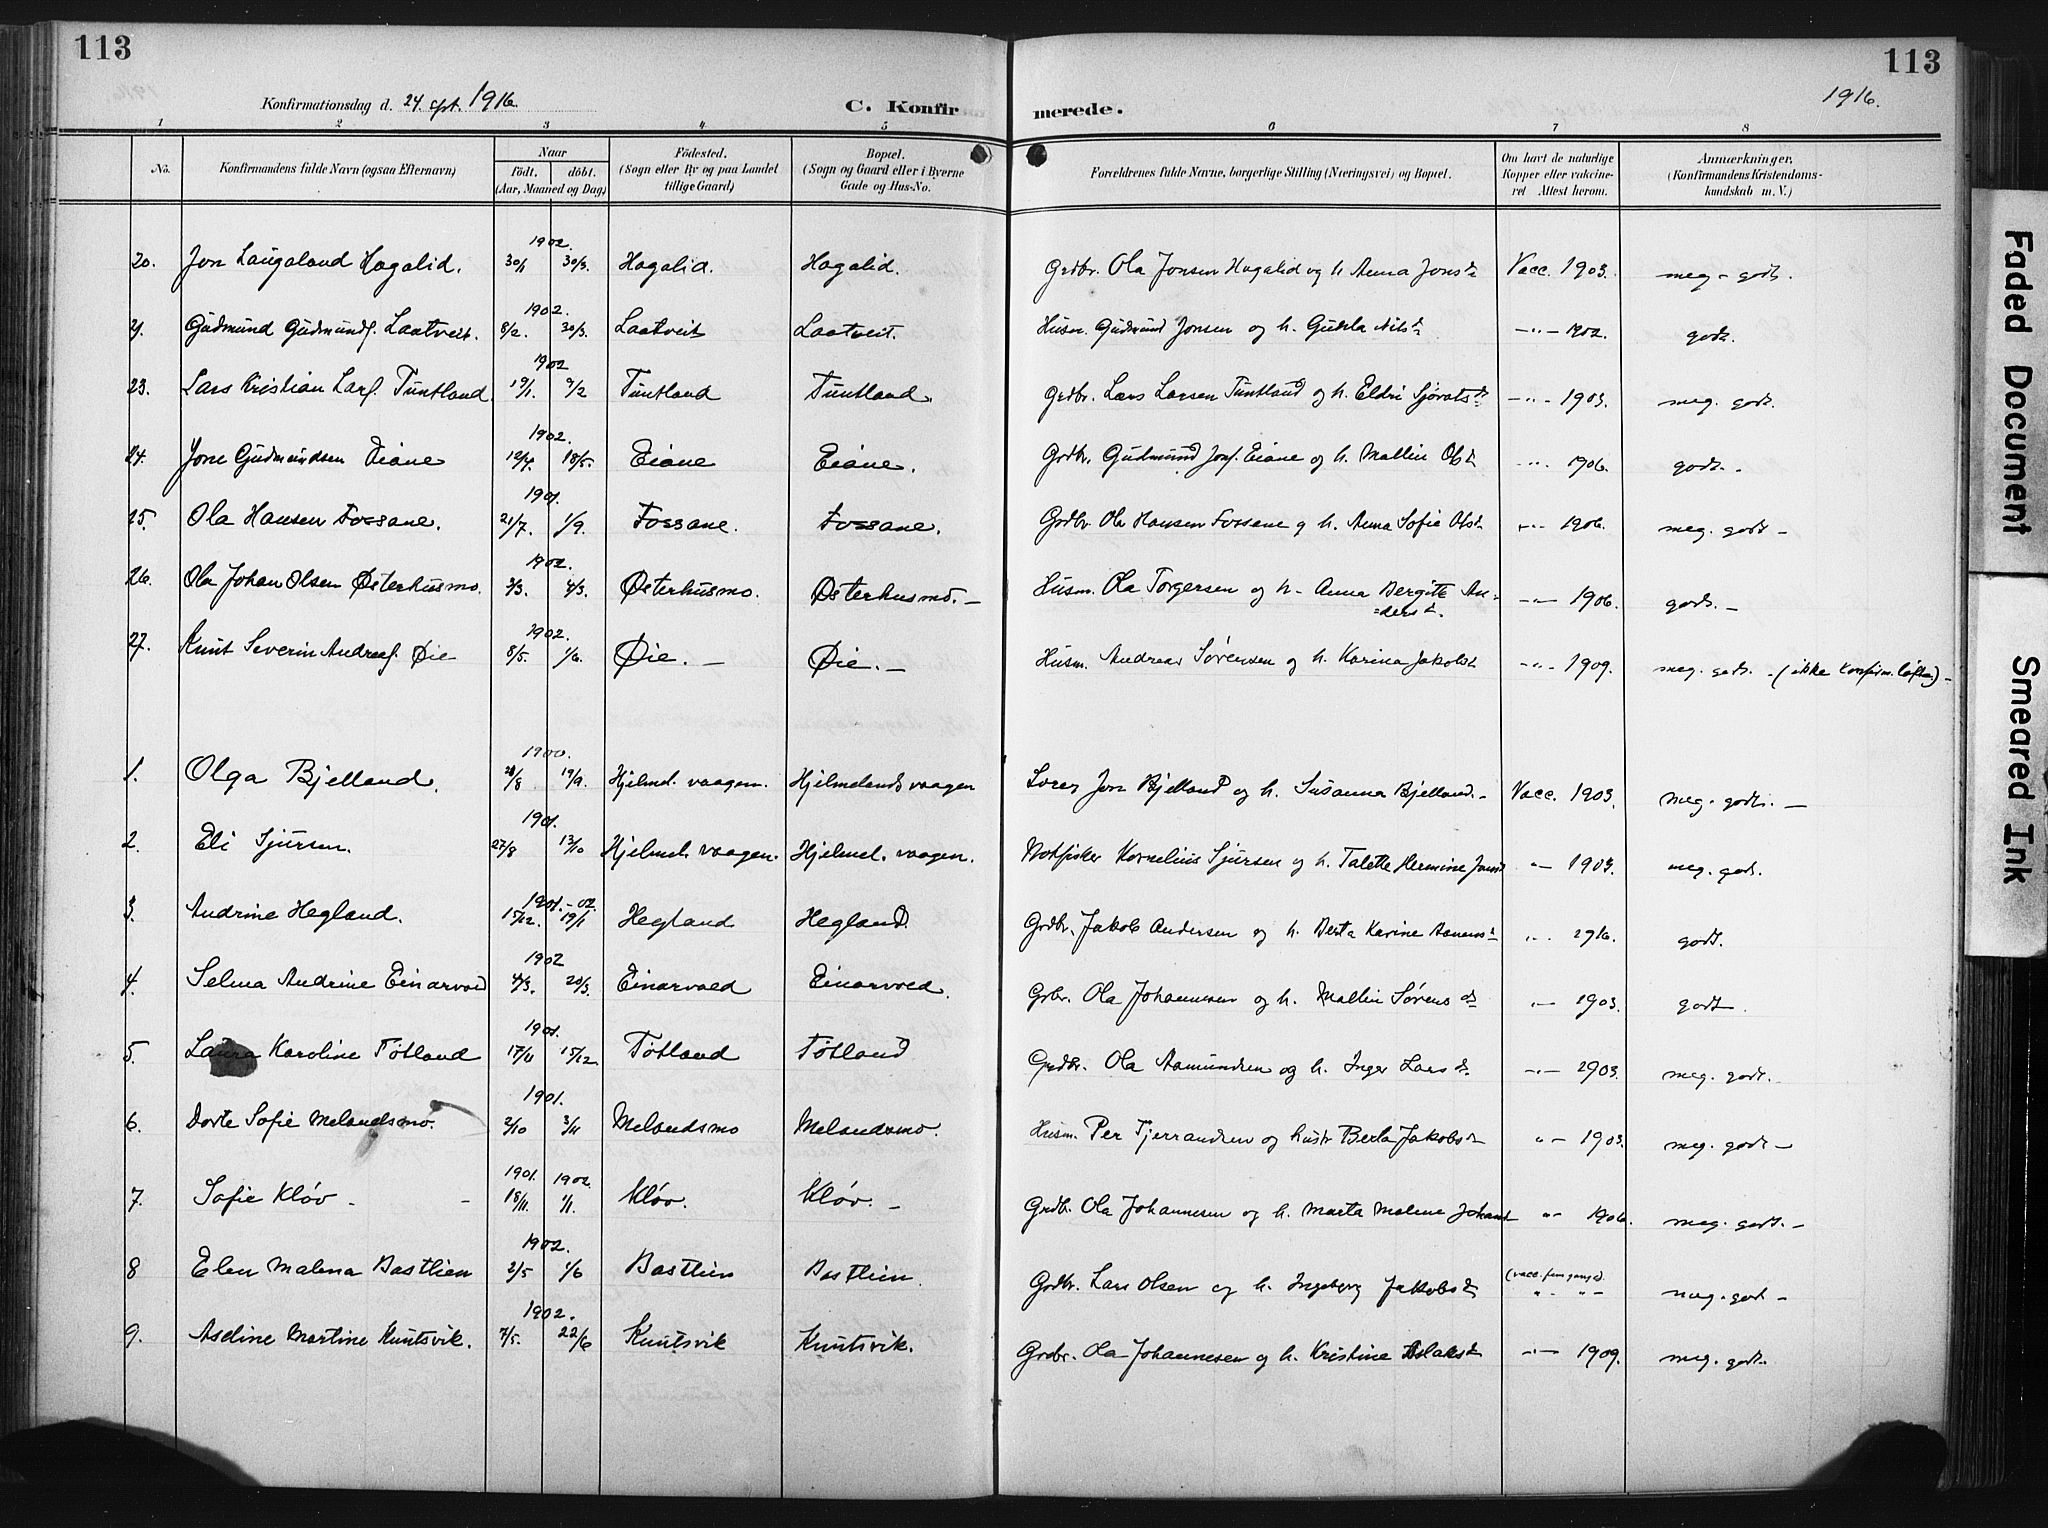 113
113
Konfirmationsdag d. 24. spt. 1916.
C. Konfirmerede.
1916.
1 2 3 4 5 6 7 8
No.
Konfirmandens fulde Navn (ogsaa Efternavn)
Naar
født. døbt.
(Aar, Maaned og Dag)
Fødested.
(Sogn eller By og paa Landet
tillige Gaard)
Bopæl.
(Sogn og Gaard eller i Byerne
Gade og Hus-No.
Forældrenes fulde Navne, borgerlige Stilling (Næringsvei) og Bopæl.
Om havt de naturlige
Kopper eller vakcine-
ret Attest herom.
Anmærkninger,
(Konfirmandens Kristendoms-
kundskab m. V.)
1902.
20. Jon Laugaland Hagalid. 30/1 30/3. Hagalid. Hagalid. Grdbr. Ola Jonsen Hagalid og h. Anna Jonsd. Vacc. 1903. meg. godt.
1902.
21. Gudmund Gudmunds. Laatveit. 8/2. 30/3. Laatveit Laatveit. Husm. Gudmund Jonsen og h. Gurla Nilsd. -"- 1902. godt.
1902
23. Lars Kristian Lars. Tuntland 19/1. 9/2 Tuntland Tuntland. Grdbr. Lars Larsen Tuntland og h. Eldri Sjøratsd. -"- 1903. meg. godt.
1902.
24. Jone Gudmundsen Eiane 12/4. 18/5. Eiane Eiane. Grdbr. Gudmund Jons. Eiane og h. Mallin Olsd. -"- 1906. godt.
1901.
25. Ola Hansen Fossane. 21/7. 1/9. Fossane. Fossane. Grdbr. Ola Hansen Fossane og h. Anna Sofie Olsd. -"- 1906. meg. godt -
1902.
26. Ola Johan Olsen Østerhusmo. 3/3. 4/3. Østerhusmo. Østerhusmo. - Husm. Ola Torgersen og h. Anna Bergitte An-
=dersd. -"- 1906. godt. -
1902.
27. Knut Severin Andreas. Øie 8/5. 1/6. Øie. - Øie. - Husm. Andreas Sørensen og h. Karina Jakobsd. -"- 1909. meg. godt. - (ikke konfirm. løfte) -
1900.
1. Olga Bjelland. /8 19/9. Hjelmel. vaagen. Hjelmelandsvaagen Jon Bjelland og h. Susanna Bjelland. - Vacc. 1903. meg. godt. -
1901.
2. Eli Sjursen. 27/8 13/10 Hjelmel. vaagen. Hjelmel. vaagen. Notfisker Kornelius Sjursen og h. Talette Hermine Jonsd. " - 1903. meg. godt.
1901. - 02.
3. Andrine Hegland. 15/12. 19/1 Hegland Hegland. Grdbr. Jakob Andersen og h. Berta Karine Aanensd. -"- 1916. godt.
1902
4. Selma Andrine Einarvold 4/3. 20/3. Einarvold Einarvold. Grbr. Ola Johannesen og h. Mallin Sørensd. " - 1903. godt.
1901.
5. Laura Karoline Tøtland 17/11 15/12. Tøtland Tøtland Grdbr. Ola Aamundsen og h. Inger Larsd. -"- 1903. meg. godt. -
1901.
6. Dorte Sofie Melandsmo. 2/10 3/11 Melandsmo Melandsmo. Husm. Per Tjerrandsen og hustr Berta Jakobsd. " - 1903. meg. godt -
1901. 1902.
7. Sofie Kløv - - 18/11. 1/1. Kløv. Kløv. - Grdbr. Ola Johannesen og h. Marta Malene Johansd " 1906. meg. godt. -
1902.
8 Elen Malena Bastlien 2/5 1/6 Bastlien Bastlien. Grdbr. Lars Olsen og h. Ingeborg Jakobsd. (vacc. fem gange). meg. godt -
1902.
9. Aseline Martine Knutsvik. 7/5. 22/6 Knutsvik Knutsvik. Grdbr. Ola Johannesen og h. Kristine Aslaksd. -"- 1909. meg. godt.
Faded Document
Smeared Ink